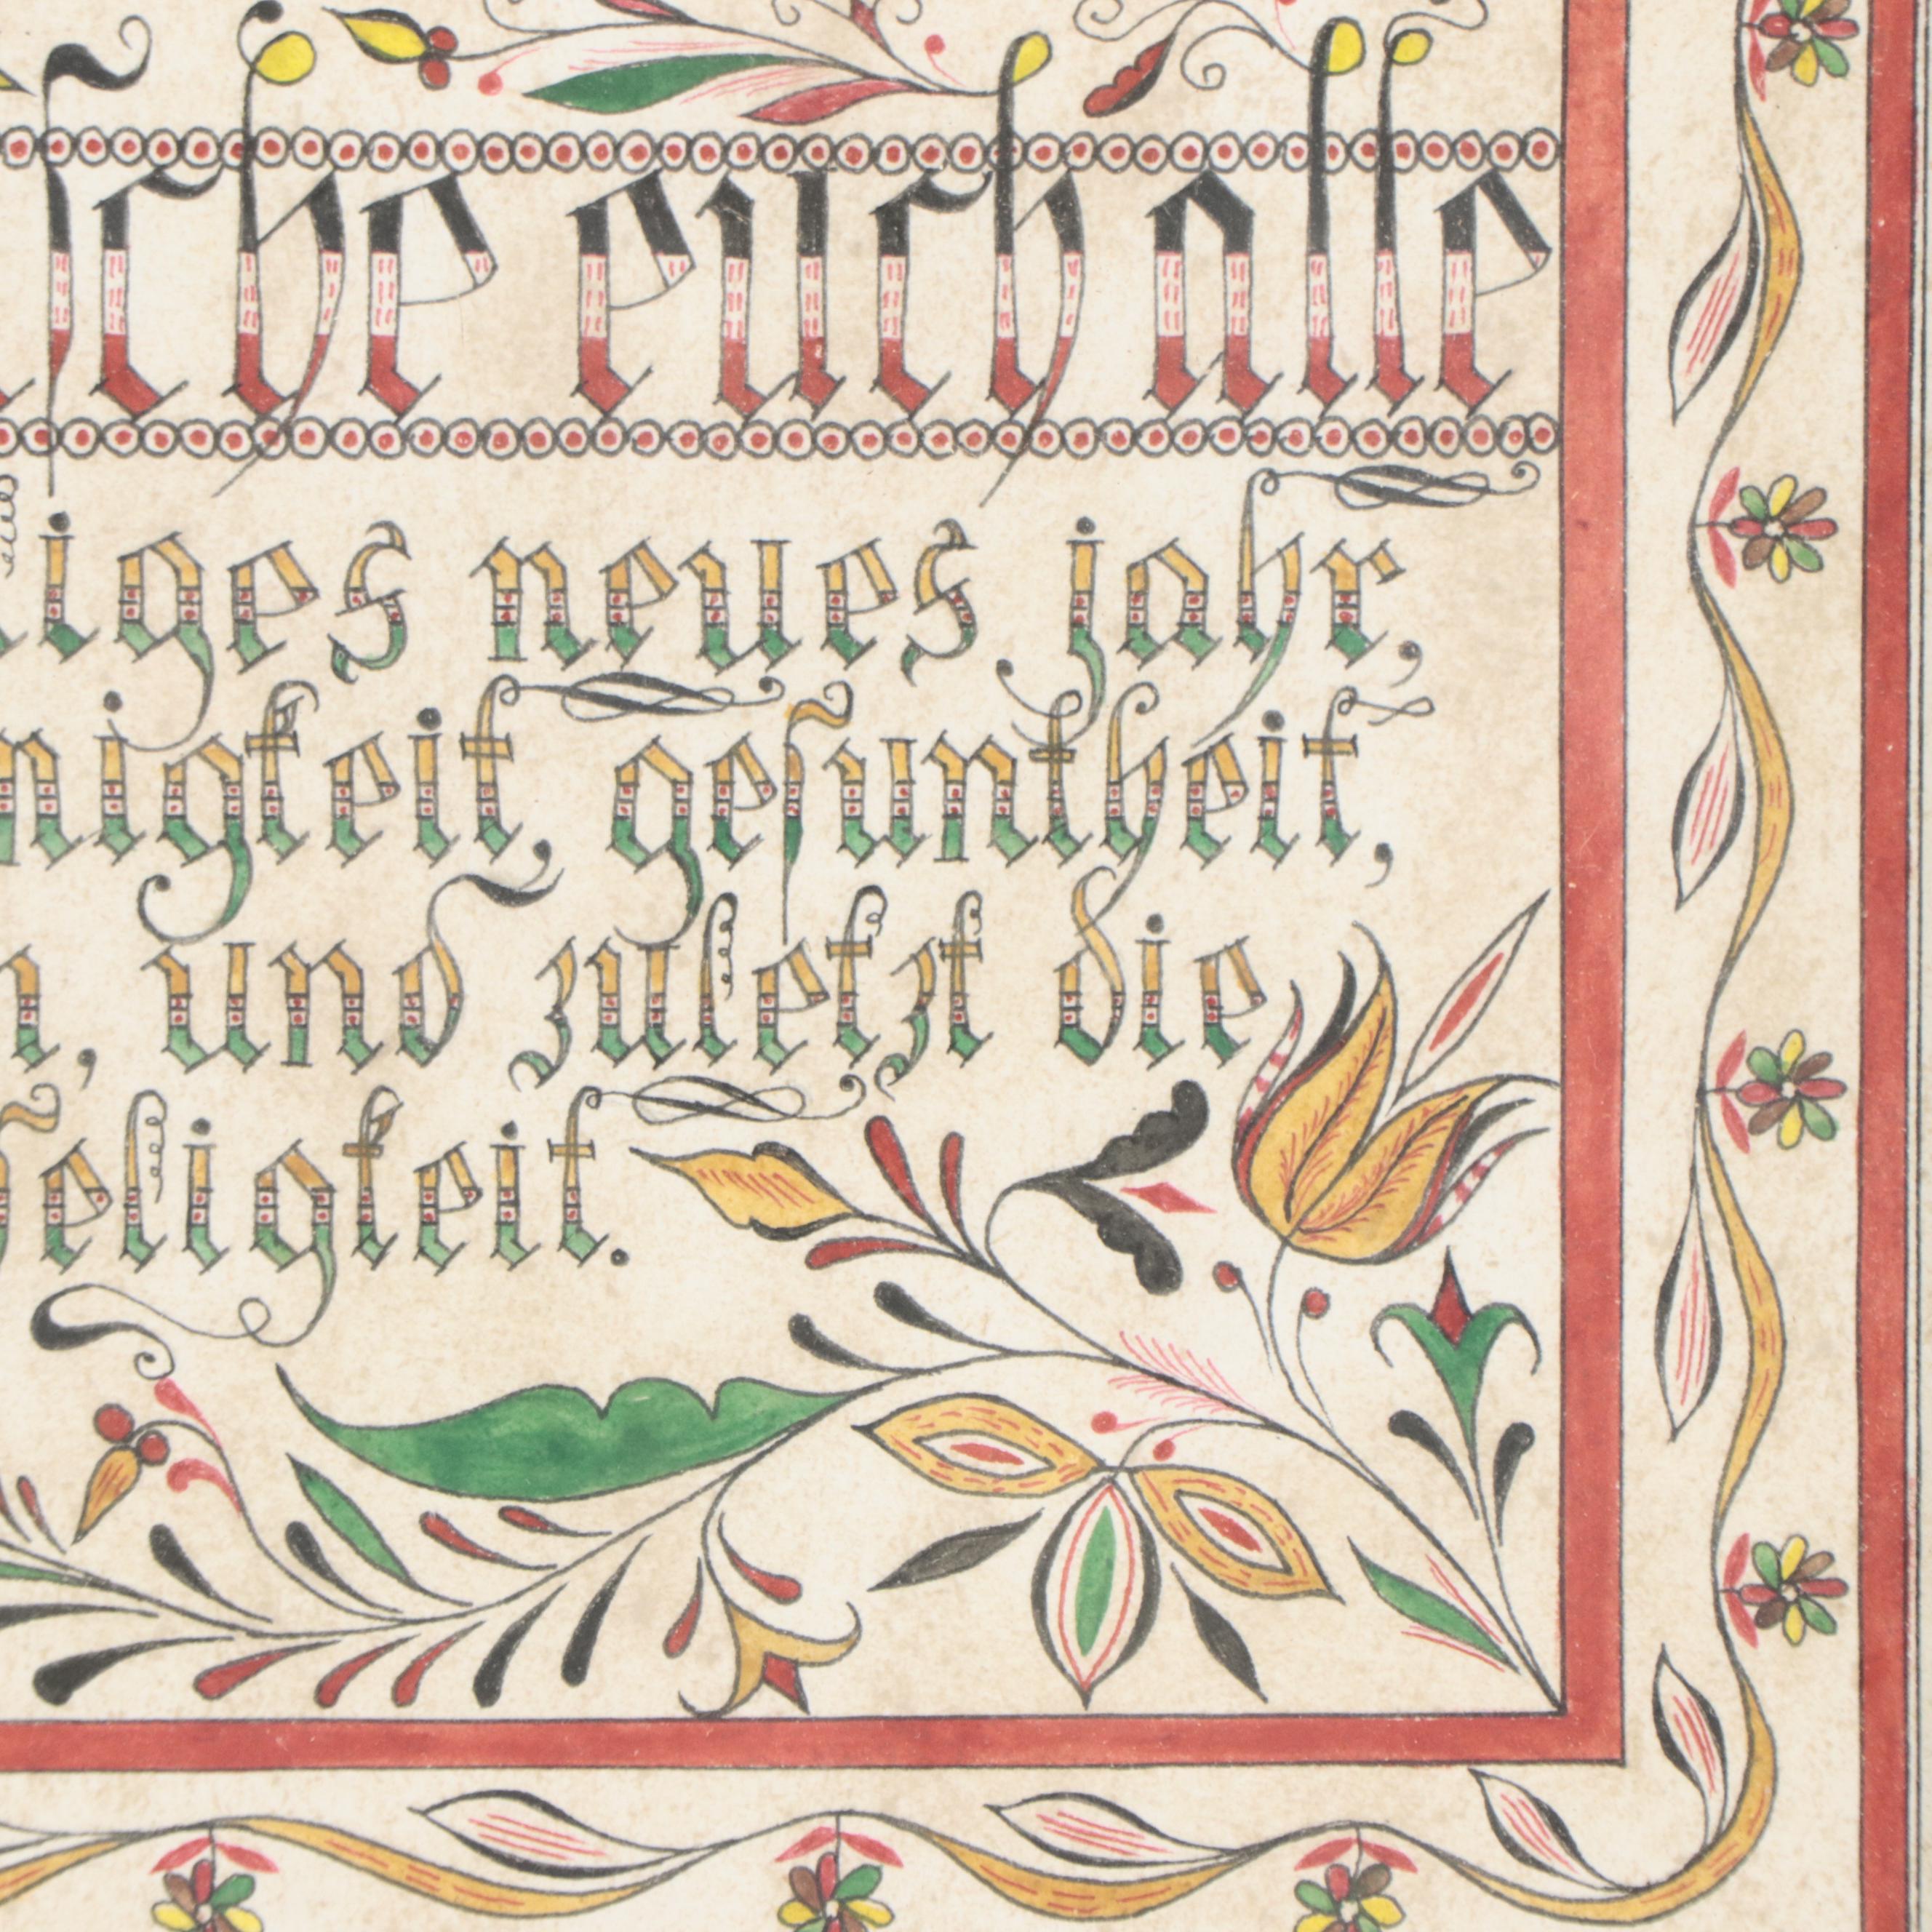 sche euch alle
iges neues jahr,
nigkeit, gesuntheit,
n, und zuletzt die
seligkeit.